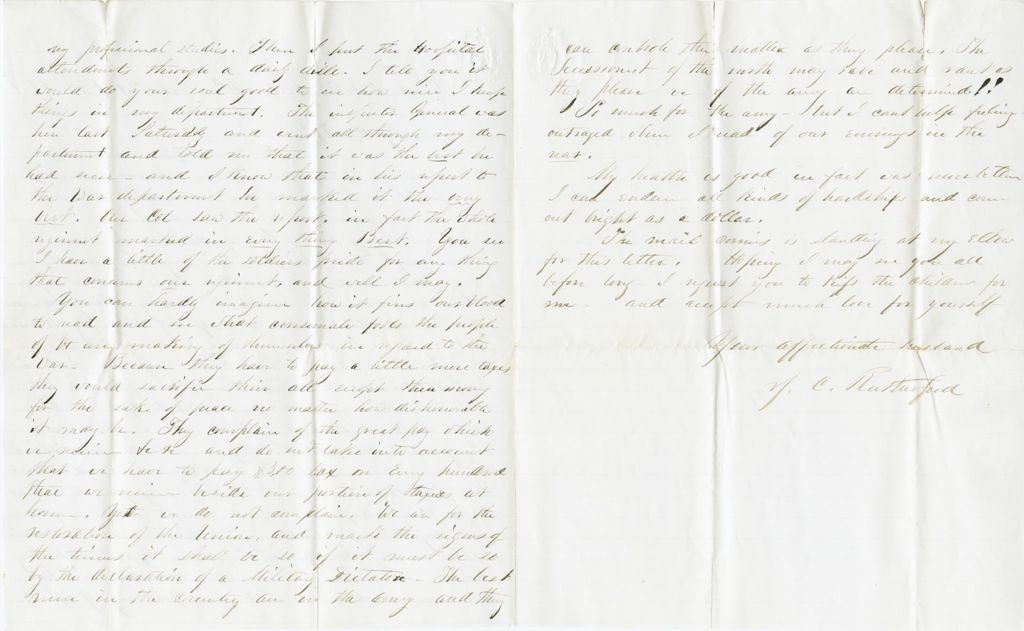 my professional studies. Then I put the Hospital
attendants through a daily drill. I tell you it
would do your soul good to see how nice I keep
things in my department. The inspector General was
here last Saturday and went all through my de-
partment and told me that it was the best he
had seen - and I know that in his report to
the War department he marked it the very
best. Our Col saw the report, in fact the whole
regiment marked in every thing Best. You see
I have a little of the soldiers pride for any thing
that concerns our regiment, and well I may.
You can hardly imagine how it fires our blood
to read and see what consumate fools the people
of Vt are making of themselves in regard to the
War. Because they have to pay a little more taxes
they would sacrifice their all except their money
for the sake of peace no matter how dishonorable
it may be. They complain of the great pay which
we receive &c &c and do not take into account
that we have to pay $3.00 tax on every hundred
that we receive beside our portion of taxes at
home. Yet we do not complain. We are for the
restoration of the Union, and mark the signs of
the times it shall be so if it must be so
by the declaration of a Military Dictator. The best
men in the country are in the army and they
can controle this matter as they please. The
Secessionist of the north may rave and rant as
they please we of the army are determined!!
So much for the army - but I cant help feeling
outraged when I read of our enemies in the
rear.
My health is good in fact was never better
I can endure all kinds of hardships and come
out bright as a dollar.
The mail carrier is standing at my elbow
for this letter. Hoping I may see you all
before long I request you to kiss the children for
me - and accept much love for yourself
Your affectionate husband
J. C. Rutherford